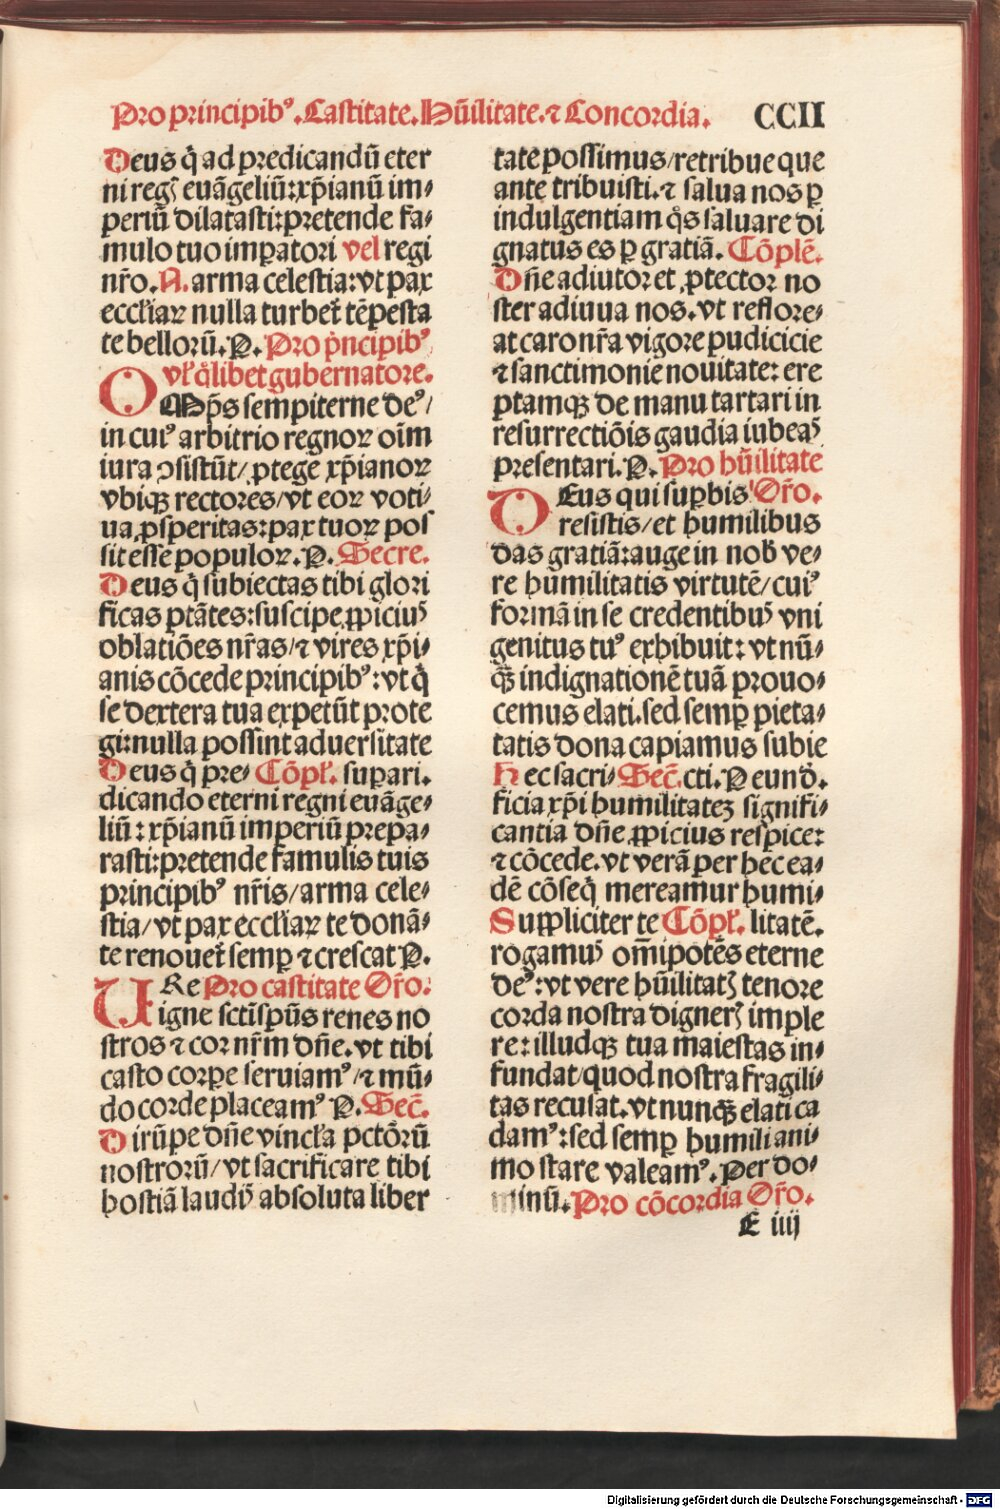 Pro principibꝰ. Castitate. Hūilitate. ⁊ Concordia. CCII
Deus q̇ ad predicandū eter
ni regꝭ euāgeliū: xp̄ianū im⸗
periū dilatasti: pretende fa⸗
mulo tuo imꝑatori vel regi
nr̄o. N. arma celestia: vt pax
eccl̄iaꝝ nulla turbet̄ tēpesta
te bellorū. P. Pro pͥncipibꝰ
vl̄ q̇libet gubernatore.
OMp̄s sempiterne deꝰ/
in cuiꝰ arbitrio regnoꝝ oīm
iura ꝯsistūt/ ꝓtege xp̄ianoꝝ
vbiqꝫ rectores/ vt eoꝝ voti⸗
ua ꝓsperitas: pax tuoꝝ pos
sit esse populoꝝ. P. Secre.
Deus q̇ subiectas tibi glori
ficas ptātes: suscipe ꝓpiciꝰ
oblatiōes nr̄as/ ⁊ vires xp̄i⸗
anis cōcede principibꝰ: vt q̇
se dextera tua expetūt prote
gi: nulla possint aduersitate
Deus q̇ pre⸗ Cōpl̄. suꝑari.
dicando eterni regni euāge⸗
liū: xp̄ianū imperiū prepa⸗
rasti: pretende famulis tuis
principibꝰ nr̄is/ arma cele⸗
stia/ vt pax eccl̄iaꝝ te donā⸗
te renouet̄ semꝑ ⁊ crescat P.
URe Pro castitate Or̄o.
igne sct̄i sp̄us renes no
stros ⁊ cor nr̄m dn̄e. vt tibi
casto corꝑe seruiamꝰ/ ⁊ mū⸗
do corde placeamꝰ P. Sec̄.
Dirūpe dn̄e vincl̄a pctōrū
nostrorū/ vt sacrificare tibi
hostiā laudꝭ absoluta liber
tate possimus/ retribue que
ante tribuisti. ⁊ salua nos ꝑ
indulgentiam q̊s saluare di
gnatus es ꝑ gratiā. Cōplē.
Dn̄e adiutor et ꝓtector no
ster adiuua nos. vt reflore⸗
at caro nr̄a vigore pudicicie
⁊ sanctimonie nouitate: ere
ptamqꝫ de manu tartari in
resurrectiōis gaudia iubeaꝭ
presentari. P. Pro hūilitate
DEus qui suꝑbis Or̄o.
resistis/ et humilibus
das gratiā: auge in nob̄ ve⸗
re humilitatis virtutē/ cuiꝰ
formā in se credentibuꝭ vni
genitus tuꝰ exhibuit: vt nū⸗
qꝫ̄ indignationē tuā prouo⸗
cemus elati. sed semꝑ pieta⸗
tatis dona capiamus subie
Hec sacri⸗ Sec̄. cti. P eund̄.
ficia xp̄i humilitateꝫ signifi⸗
cantia dn̄e ꝓpicius respice:
⁊ cōcede. vt verā per hec ea⸗
dē cōseq̇ mereamur humi⸗
Supplic̄iter te Cōpl̄. litatē.
rogamuꝭ om̄ipotēs eterne
deꝰ: vt vere hūilitatꝭ tenore
corda nostra dignerꝭ imple
re: illudqꝫ tua maiestas in⸗
fundat/ quod nostra fragili⸗
tas recusat. vt nunqꝫ̄ elati ca
damꝰ: sed semꝑ humili ani⸗
mo stare valeamꝰ. Per do⸗
minū. Pro cōcordia Or̄o.
E iiij
Digitalisierung gefördert durch die Deutsche Forschungsgemeinschaft - DFG